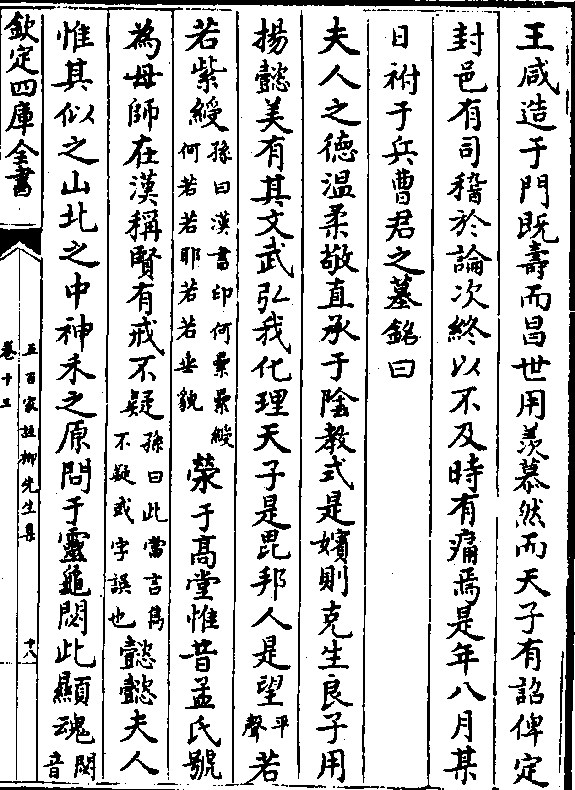 王咸造于門既壽而昌世用羨慕然而天子有詔俾定
封邑有司稽於論次終以不及時有痛焉是年八月某
日祔于兵曹君之墓銘曰
夫人之德溫柔敬直承于陰教式是嬪則克生良子用
揚懿美有其文武弘我化理天子是毘邦人是望平聲若
若紫綬孫曰漢書印何纍纍綬何若若耶若若垂貌榮于高堂惟昔孟氏號
為母師在漢稱賢有戒不疑孫曰此當言雋不疑或字誤也懿懿夫人
惟其似之山北之中神禾之原問于靈龜閟此顯魂閟音
欽定四庫全書
五百家註柳先生集
卷十三
十八